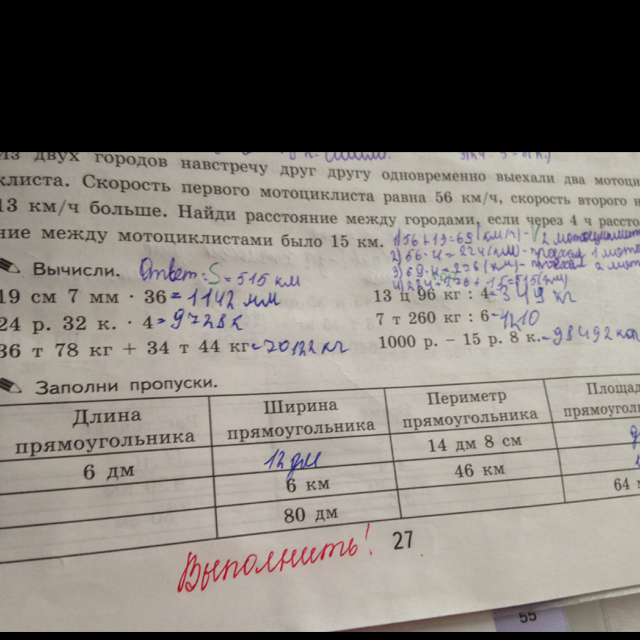 Из двух городов навстречу друг другу одновременно выехали два мотоци
клиста. Скорость первого мотоциклиста равна 56 км/ч, скорость второго н
13 км/ч больше. Найди расстояние между городами, если через 4 ч рассто
ние между мотоциклистами было 15 км. 1) 56+13=69(км/ч)-V 2 мотоциклиста
2) 56·4=224(км)- проехал 1 мото
3) 69·4=276(км)- проехал 2 мото
4) 224+276+15=515(км)
Вычисли. Ответ: S=515 км
19 см 7 мм · 36=1142 мм
13 ц 96 кг : 4=349 кг
24 р. 32 к. · 4=9728к
7 т 260 кг : 6=1210
36 т 78 кг + 34 т 44 кг=70122 кг
1000 р. – 15 р. 8 к.=98492коп
Заполни пропуски.
Длина прямоугольника
Ширина прямоугольника
Периметр прямоугольника
Площад прямоуголь
12 дм
14 дм 8 см
6 дм
6 км
46 км
80 дм
64
Выполнить!
27
55